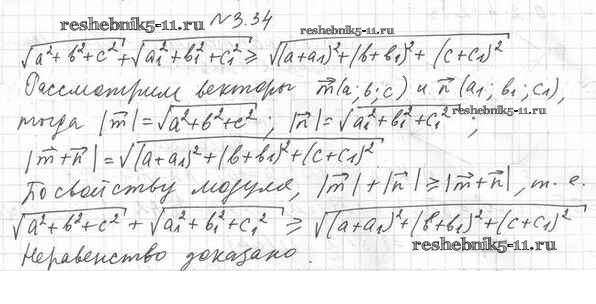 №3.34
reshebnik5-11.ru
reshebnik5-11.ru
√(a²+b²+c²) + √(a₁²+b₁²+c₁²) ≥ √((a+a₁)²+(b+b₁)²+(c+c₁)²)
Рассмотрим векторы m⃗(a;b;c) и n⃗(a₁;b₁;c₁),
reshebnik5-11.ru
тогда |m⃗|=√(a²+b²+c²); |n⃗|=√(a₁²+b₁²+c₁²);
|m⃗+n⃗|=√((a+a₁)²+(b+b₁)²+(c+c₁)²)
По свойству модуля, |m⃗|+|n⃗|≥|m⃗+n⃗|, т.е.
√(a²+b²+c²) + √(a₁²+b₁²+c₁²) ≥ √((a+a₁)²+(b+b₁)²+(c+c₁)²)
Неравенство доказано.
reshebnik5-11.ru